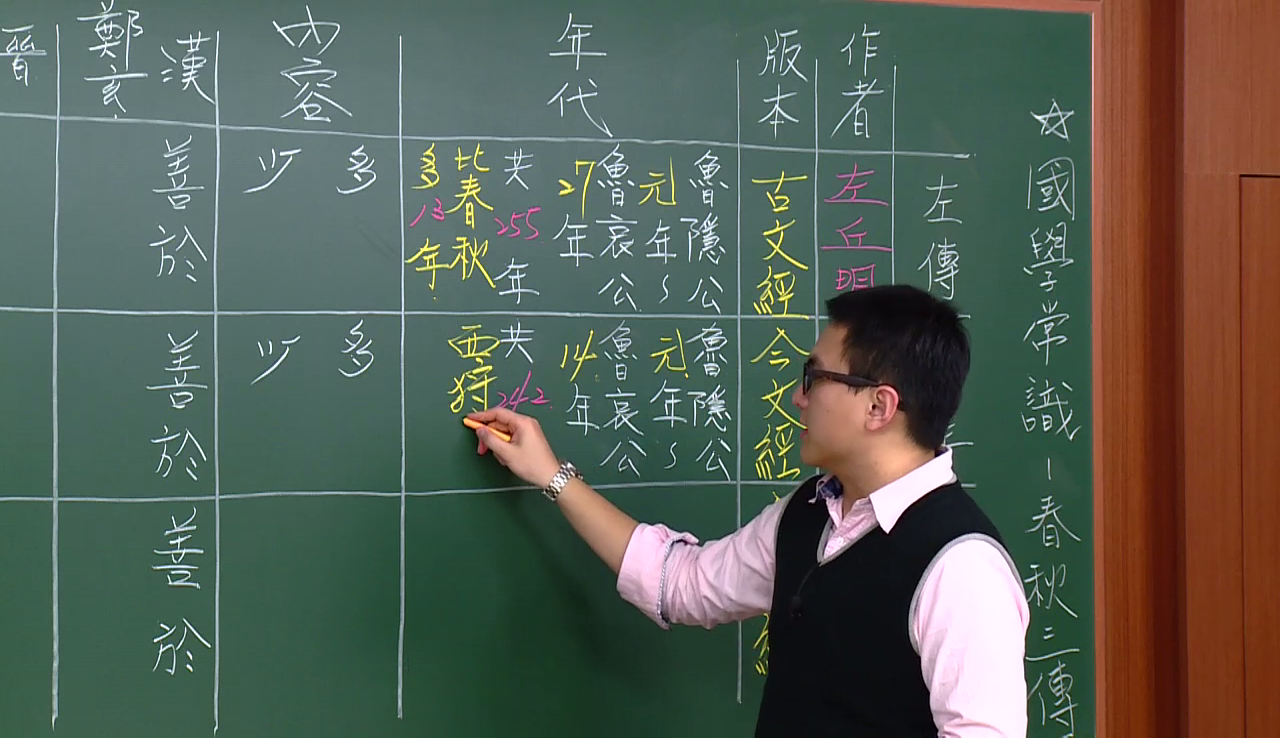 ☆國學常識-春秋三傳
左傳
作者
左丘明
版本
古文經
今文經
年代
魯隱公
元年~
魯哀公
27年
共255年
比春秋
多13年
魯隱公
元年~
魯哀公
14年
共242
西狩
內容
多
少
多
少
漢
鄭玄
善於
善於
善於
晉